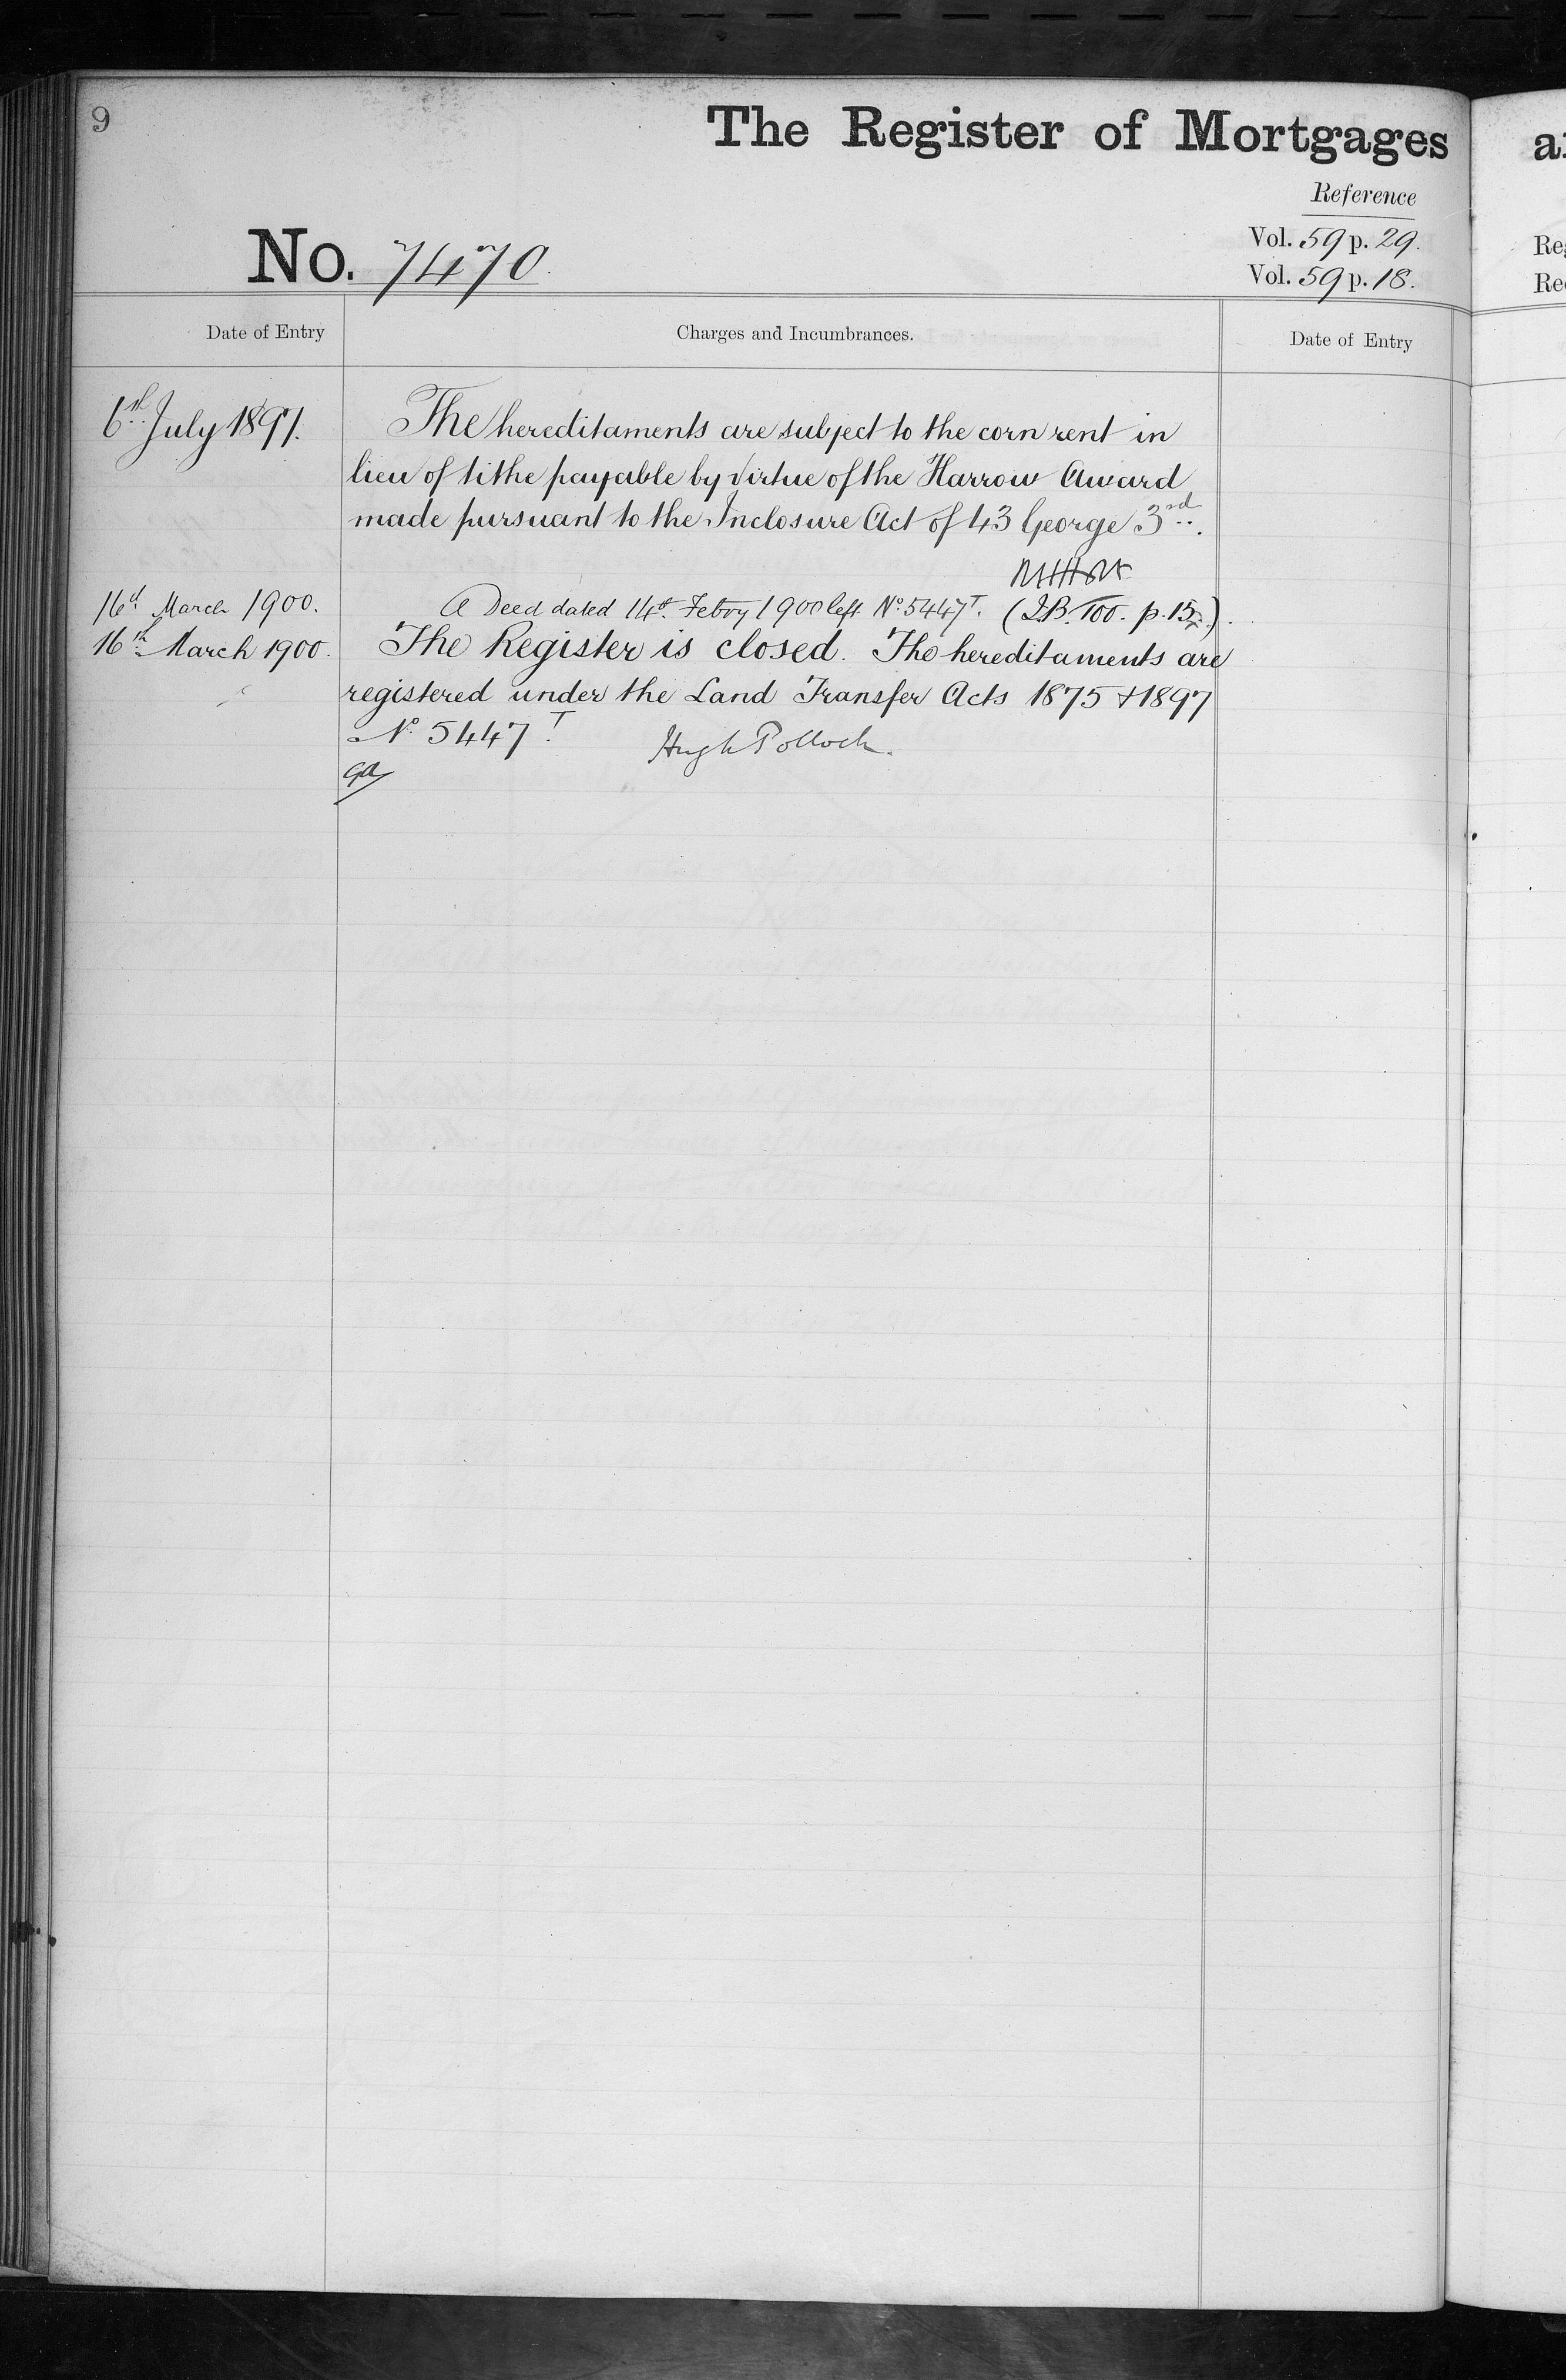 9
The Register of Mortgages
Reference
Vol. 59 p. 29.
No. 7470.
Vol. 59 p. 18.
Date of Entry
Charges and Incumbrances.
Date of Entry
6th July 1897.
The hereditaments are subject to the corn rent in
lieu of tithe payable by virtue of the Harrow Award
made pursuant to the Inclosure Act of 43 George 3rd.
16th March 1900.
A Deed dated 14th Febry 1900 left No. 5447T. (I.B. T00. p. 15).
16th March 1900.
The Register is closed. The hereditaments are
registered under the Land Transfer Acts 1875 & 1897
No. 5447T.
Hugh Pollock.